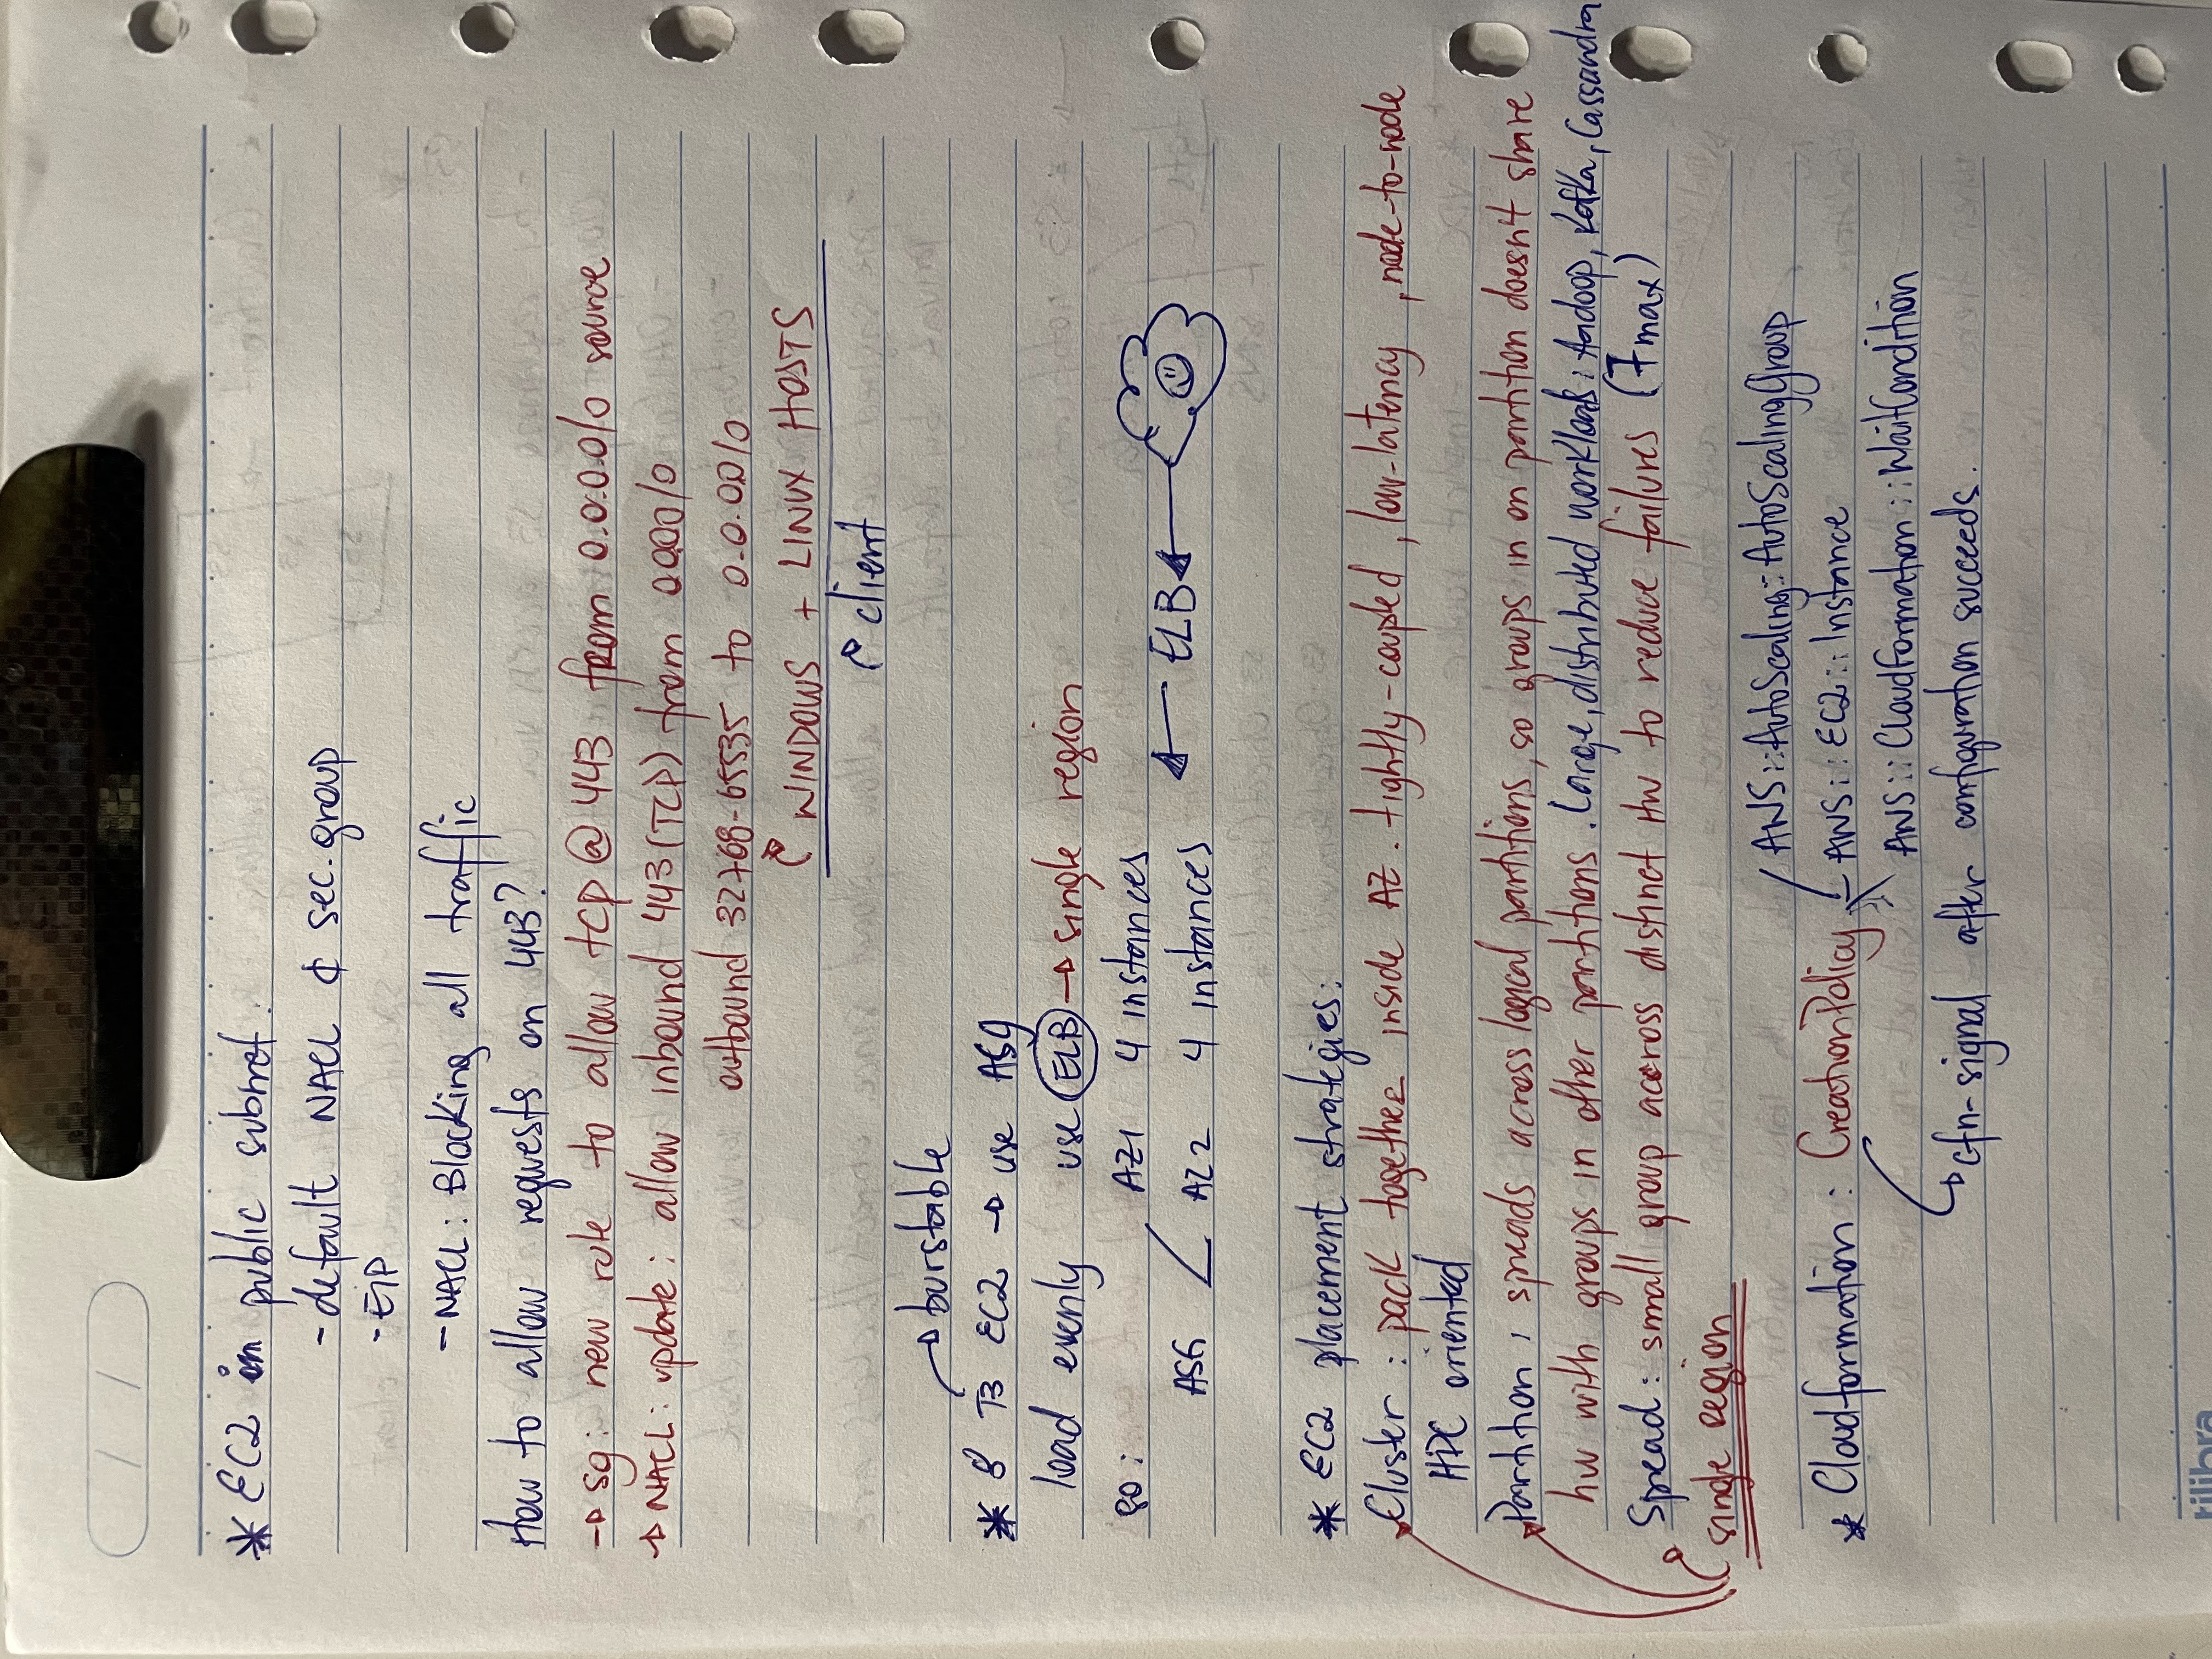 * EC2 in public subnet:
- default NACL & sec. group
- EIP
- NACL: Blocking all traffic
How to allow requests on 443?
→ sg: new rule to allow tcp @ 443 from 0.0.0.0/0 source
→ NACL: update: allow inbound 443 (TCP) from 0.0.0.0/0
outbound 32768-65535 to 0.0.0.0/0
WINDOWS + LINUX HOSTS
client
burstable
* 8 T3 EC2 → use ASg
load evenly use ELB → single region
so: AZ1 4 instances
ASG AZ2 4 instances ← ELB ←
* EC2 placement strategies:
Cluster: pack together inside AZ. tightly-coupled, low-latency, node-to-node
HPC oriented
Partition: spreads across logical partitions, so groups in on partition doesn't share
hw with groups in other partitions. Large, distributed workloads: Hadoop, Kafka, Cassandra
Spread: small group accross distinct HW to reduce failures (7 max)
single region
AWS::AutoScaling::AutoScalingGroup
* Cloudformation: CreationPolicy - AWS::EC2::Instance
AWS::CloudFormation::WaitCondition
cfn-signal after configuration succeeds.
tilibra